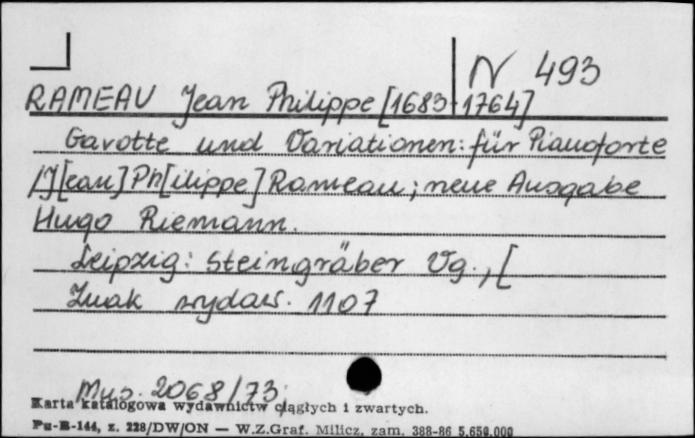 N 493
RAMEAU Jean Philippe [1683-1764]
Gavotte und Variationen: für Pianoforte
/J[ean] Ph[ilippe] Rameau; neue Ausgabe
Hugo Riemann.
Leipzig: Steingräber Vg., [
Znak wydaw. 1107
Mus. 2068/73
Karta katalogowa wydawnictw ciągłych i zwartych.
Pu-B-144, z. 228/DW/ON — W.Z.Graf. Milicz, zam. 388-86 5.650.000